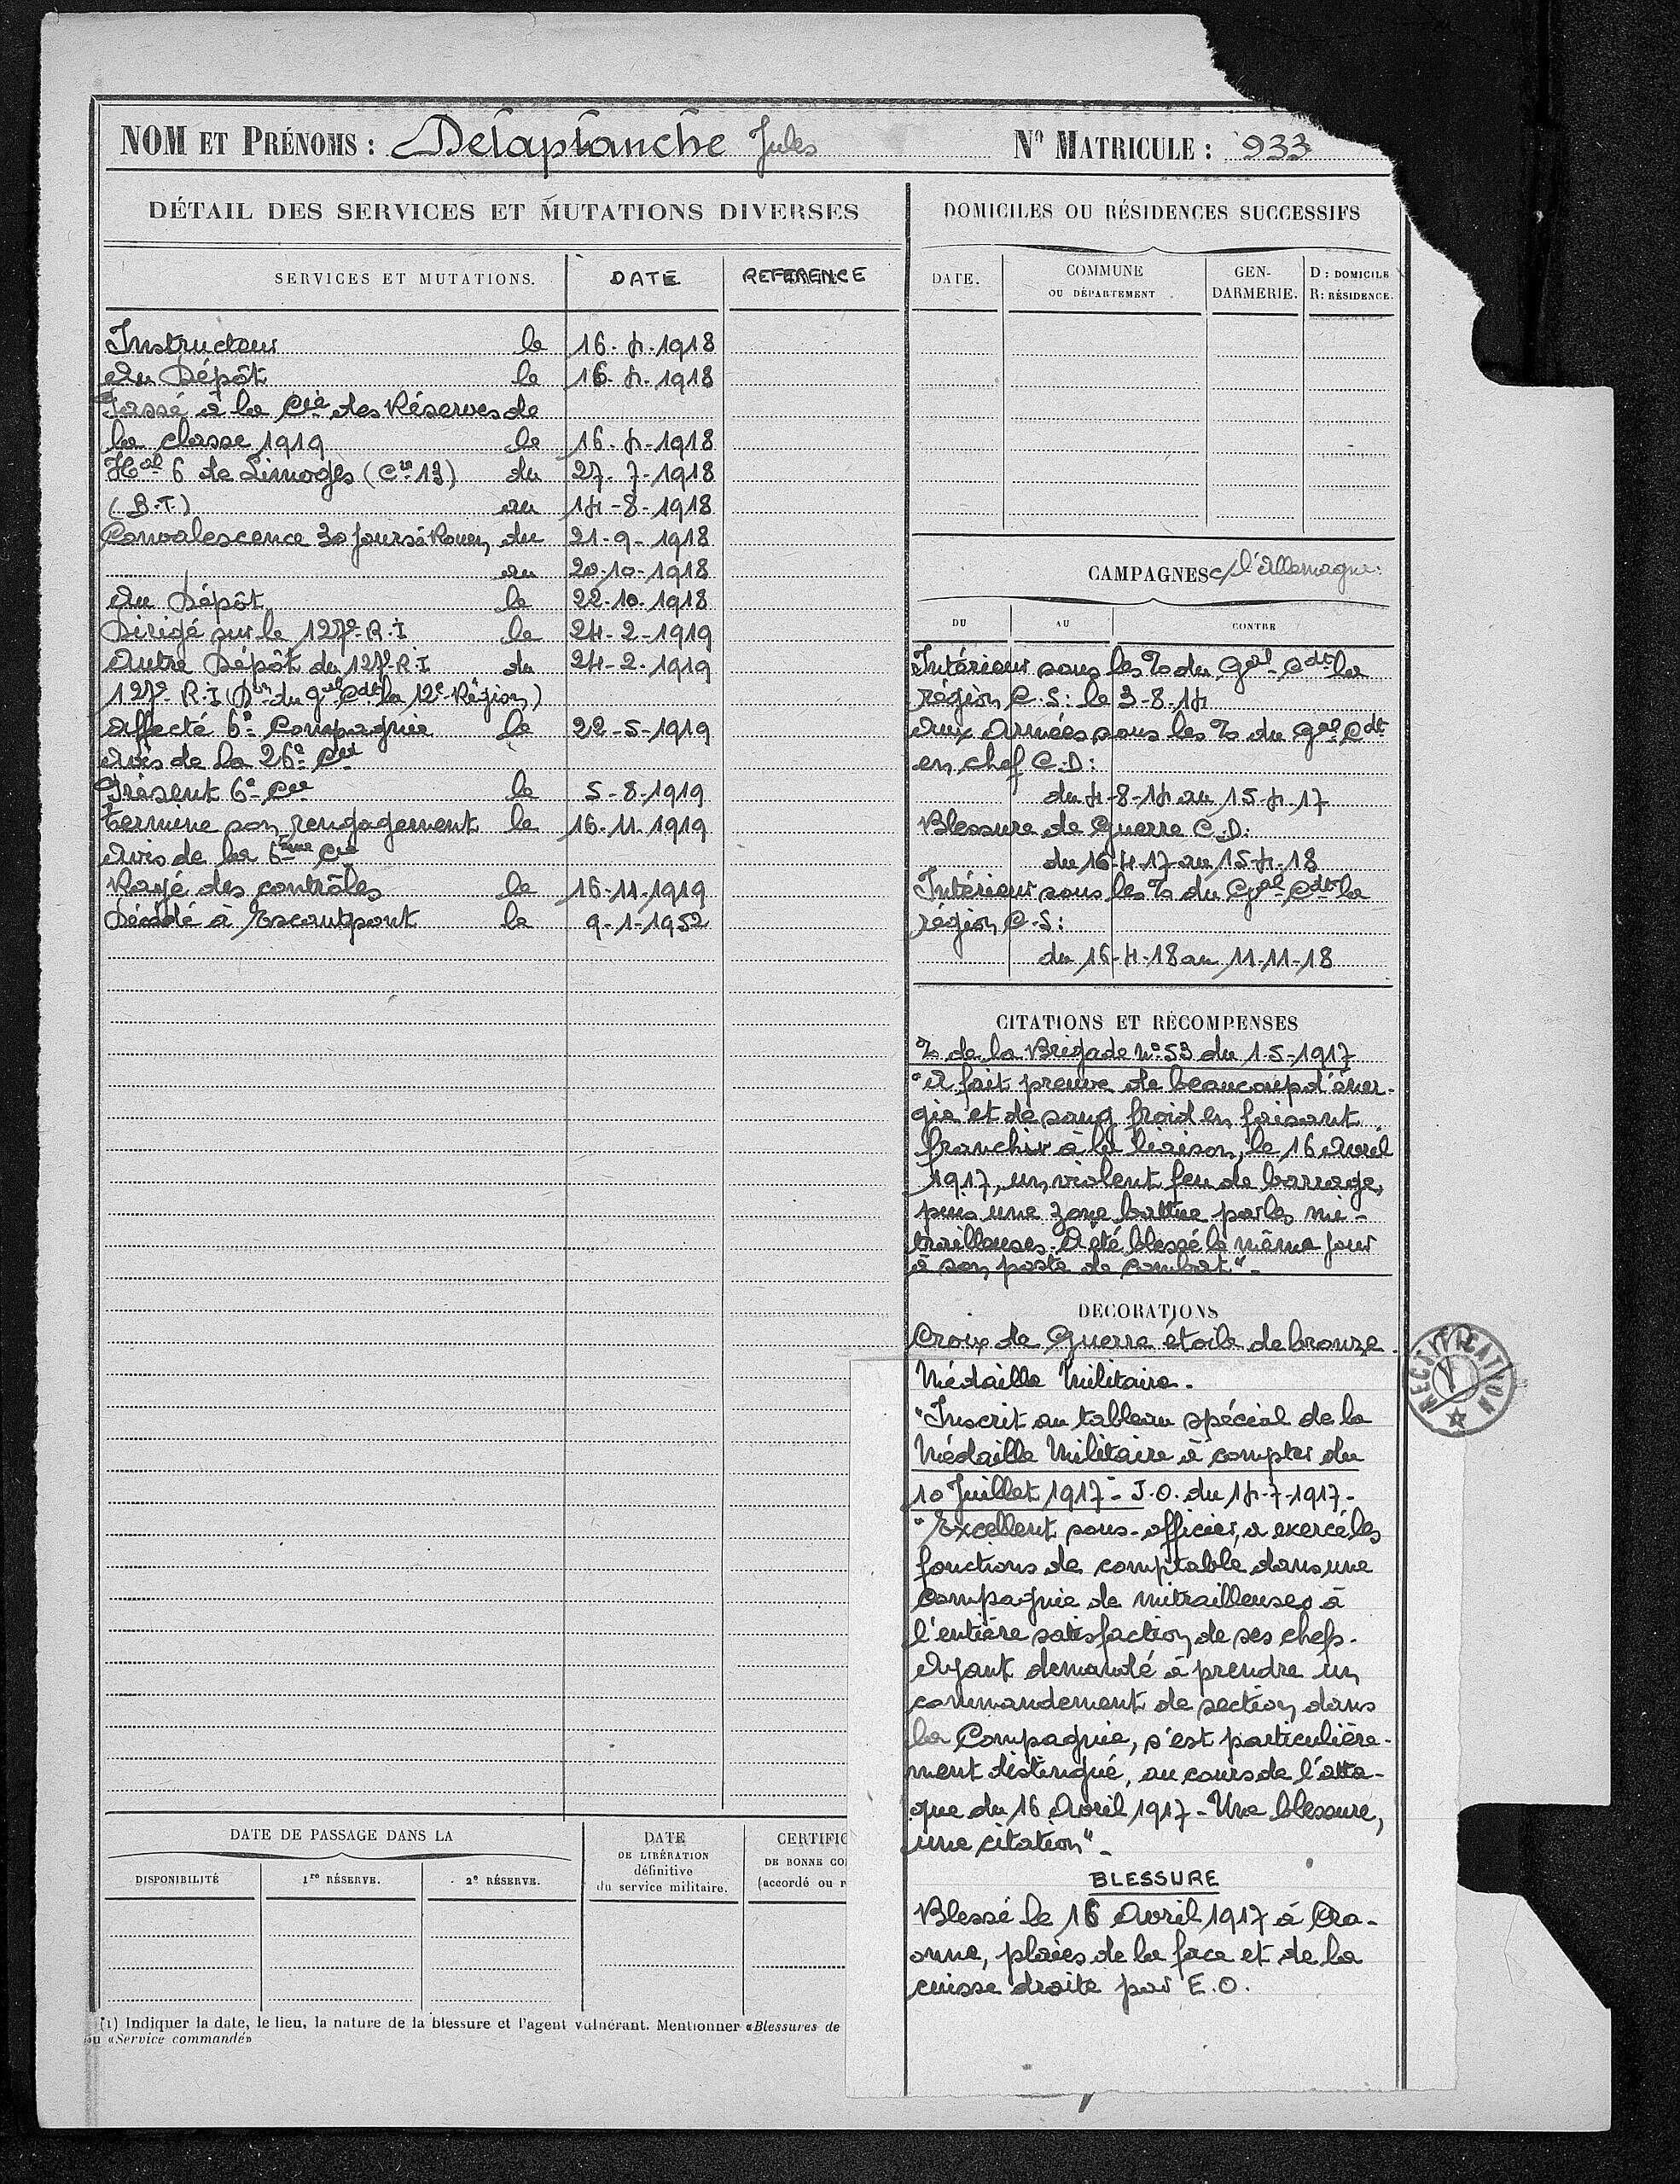 NOM ET PRÉNOMS : Delaplanche Jules
N° MATRICULE : 933
DÉTAIL DES SERVICES ET MUTATIONS DIVERSES
SERVICES ET MUTATIONS. DATE REFERENCE
Instructeur le 16-4-1918
Au Dépôt le 16-4-1918
Passé à la Cie des Réserves de
la classe 1919 le 16-4-1918
Hal 6 de Limoges (Cre 13) du 27-7-1918
(B.T.) au 14-8-1918
Convalescence 30 jours à Rouen du 21-9-1918
au 20-10-1918
Au Dépôt le 22-10-1918
Dirigé sur le 127e R.I le 24-2-1919
Entre Dépôt du 127e R.I du 24-2-1919
127e R.I (Don du Gal Cdt la 12e Région)
Affecté 6e Compagnie le 22-5-1919
Avis de la 26e Cie
Présent 6e Cie le 5-8-1919
Termine son rengagement le 16-11-1919
Avis de la 6ème Cie
Rayé des contrôles le 16-11-1919
Décédé à Escautpont le 9-1-1952
DATE DE PASSAGE DANS LA
DISPONIBILITÉ 1re RÉSERVE. 2e RÉSERVE.
DATE
DE LIBÉRATION
définitive
du service militaire.
CERTIFIC
DE BONNE CO
(accordé ou r
(1) Indiquer la date, le lieu, la nature de la blessure et l'agent vulnérant. Mentionner «Blessures de
ou «Service commandé»
DOMICILES OU RÉSIDENCES SUCCESSIFS
DATE.
COMMUNE
OU DÉPARTEMENT
GEN-
DARMERIE.
D : DOMICILE
R : RÉSIDENCE.
CAMPAGNES c/ l'Allemagne.
DU AU CONTRE
Intérieur sous les % du Gal Cdt la
région C.S: le 3-8-14
Aux Armées sous les % du Gal Cdt
en chef C.D:
du 4-8-14 au 15-4-17
Blessure de Guerre C.D:
du 16-4-17 au 15-4-18
Intérieur sous les % du Gal Cdt la
région C.S:
du 16-4-18 au 11-11-18
CITATIONS ET RÉCOMPENSES
% de la Brigade N° 53 du 1-5-1917
"A fait preuve de beaucoup d'éner-
gie et de sang froid en faisant
franchir à la liaison, le 16 Avril
1917, un violent feu de barrage,
puis une zone battue par les mi-
trailleuses. A été blessé le même jour
à son poste de combat"-
DÉCORATIONS
Croix de Guerre étoile de bronze
Médaille Militaire.
"Inscrit au tableau spécial de la
Médaille Militaire à compter du
10 Juillet 1917 - J.O. du 14-7-1917-
"Excellent sous-officier, a exercé les
fonctions de comptable dans une
compagnie de mitrailleuses à
l'entière satisfaction de ses chefs.
Ayant demandé à prendre un
commandement de section dans
la Compagnie, s'est particulière-
ment distingué, au cours de l'atta-
que du 16 Avril 1917 - Une blessure,
une citation"-
BLESSURE
Blessé le 16 Avril 1917 à Cra-
onne, plaies de la face et de la
cuisse droite par E.O.
RECTIFICATION